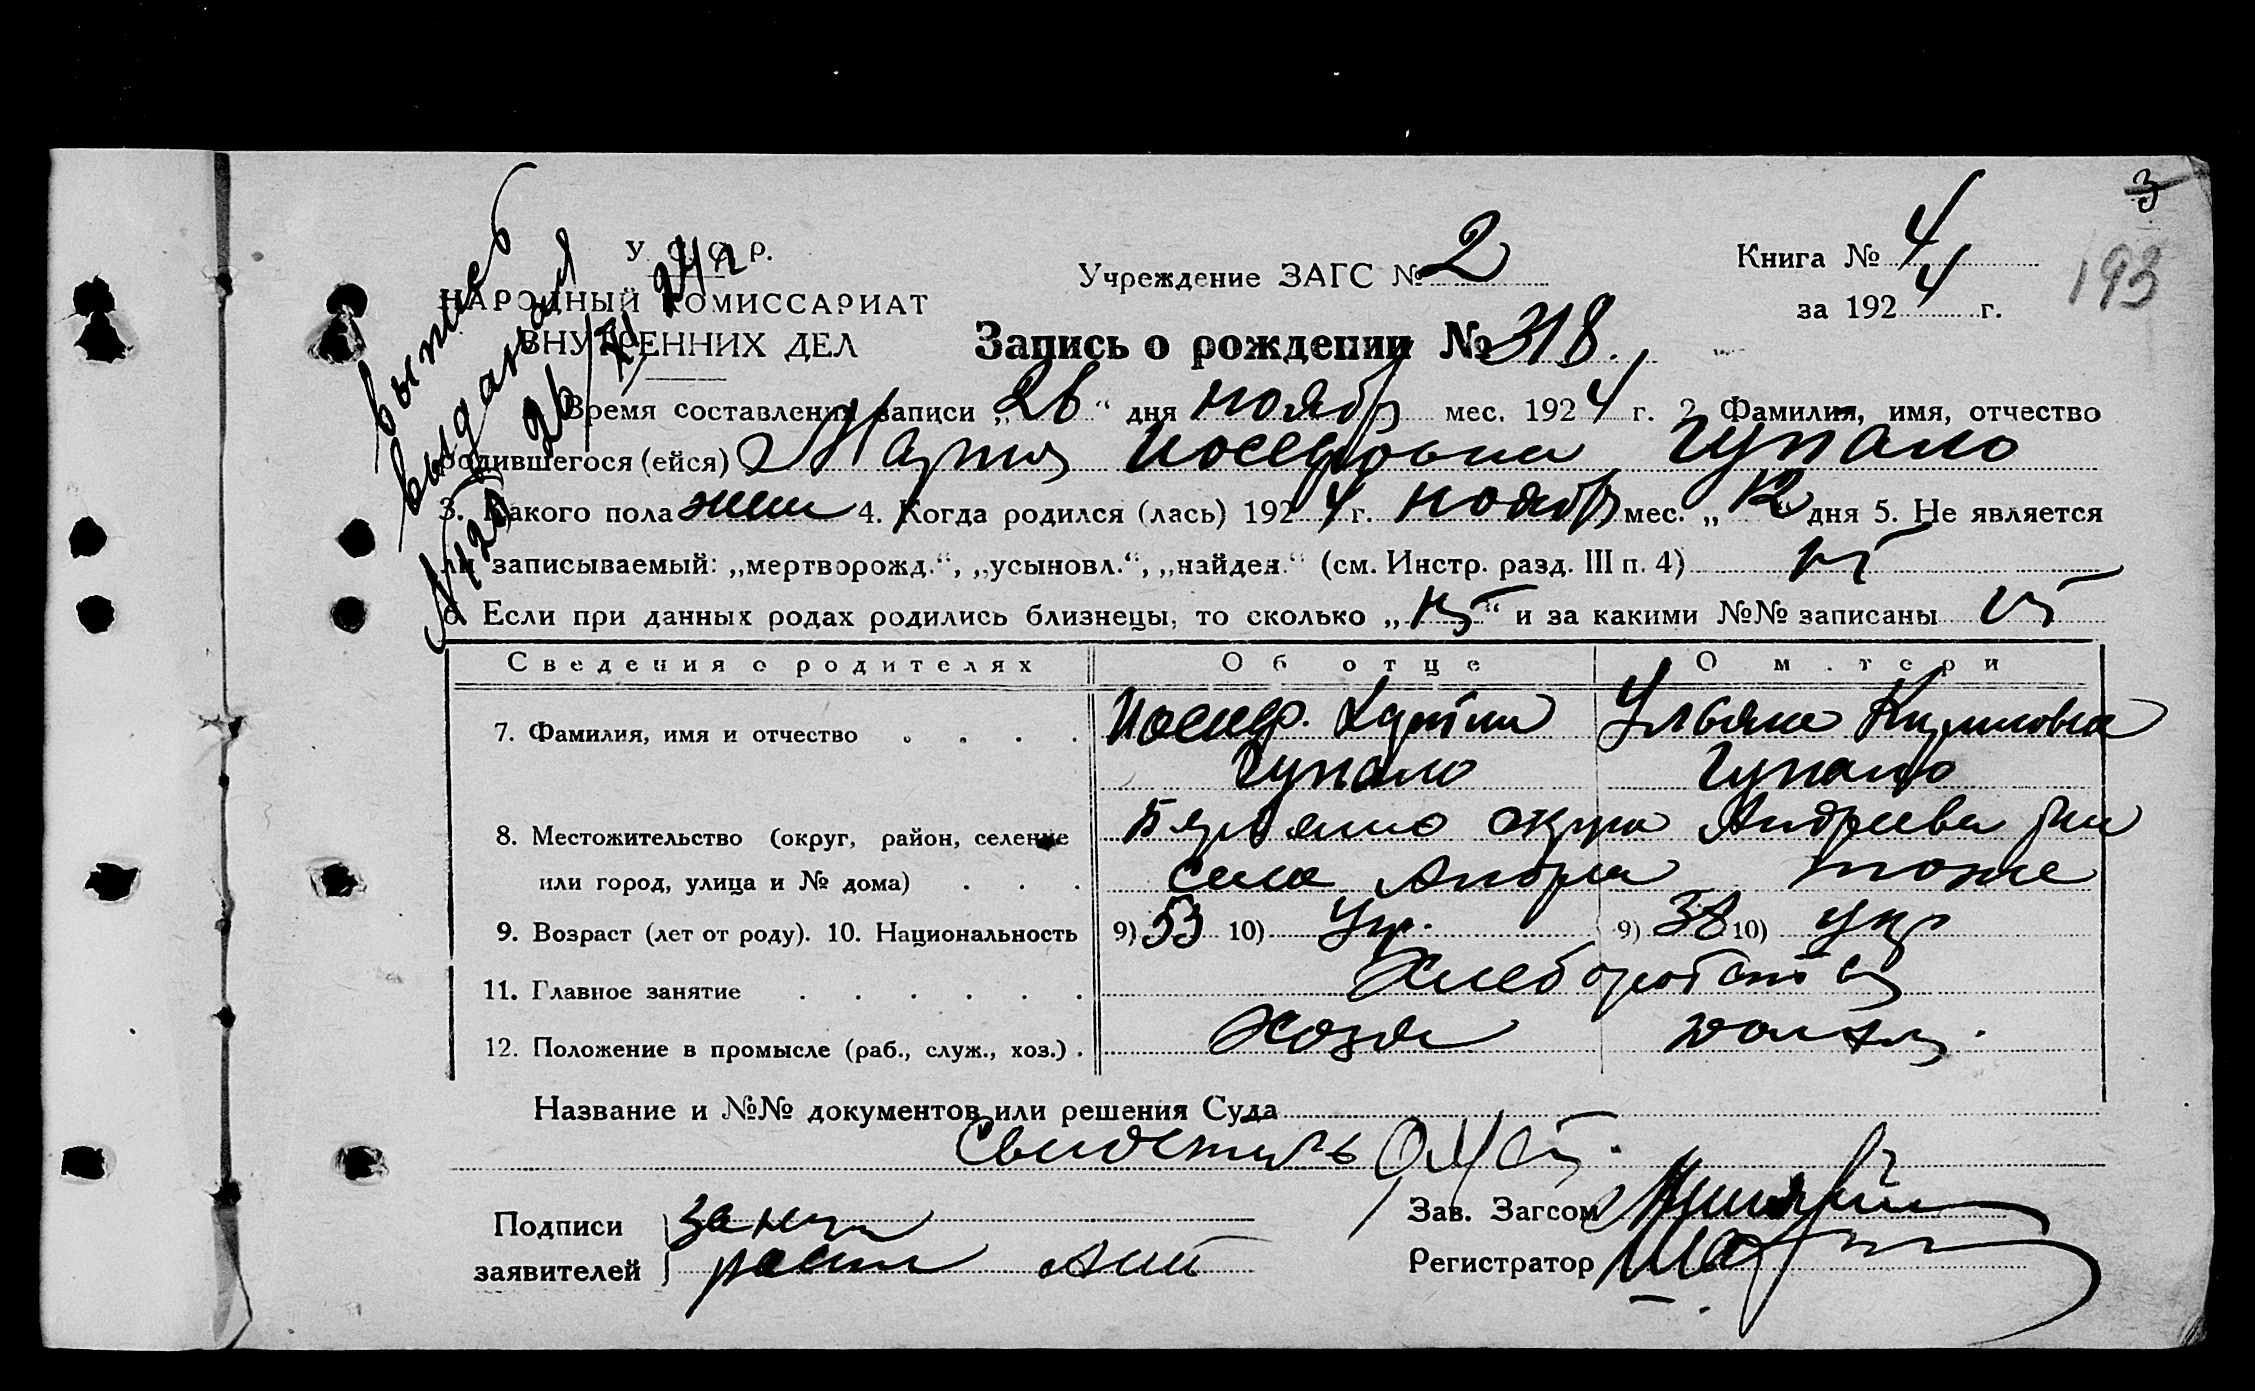 3
193
У. С. С. Р.
НАРОДНЫЙ КОМИССАРИАТ
ВНУТРЕННИХ ДЕЛ
Учреждение ЗАГС № 2
Книга № 4
за 1924 г.
Запись о рождении № 318.
выпись
выдана
Время составления записи „26“ дня ноябр мес. 1924 г. 2. Фамилия, имя, отчество
родившегося (ейся) Мария Иосифовна Чупало
3. Какого пола жен 4. Когда родился (лась) 1924 г. ноябр мес. „12 дня 5. Не является
ли записываемый: „мертворожд.“, „усыновл.“, „найден.“ (см. Инстр. разд. III п. 4) нт
6. Если при данных родах родились близнецы, то сколько „нт“ и за какими №№ записаны нт
Сведения о родителях Об отце О матери
7. Фамилия, имя и отчество . . . . Иосиф. Ульяна
Чупало Чупало
8. Местожительство (округ, район, селение округа Андреева
или город, улица и № дома) . . . села Андре тоже
9. Возраст (лет от роду). 10. Национальность 9) 53 10) Ук. 9) 38 10) укр
11. Главное занятие . . . . . . Хлеборобство
12. Положение в промысле (раб., служ., хоз.) . хозя
Название и №№ документов или решения Суда
Свидетель
Подписи
заявителей
Зав. Загсом
Регистратор